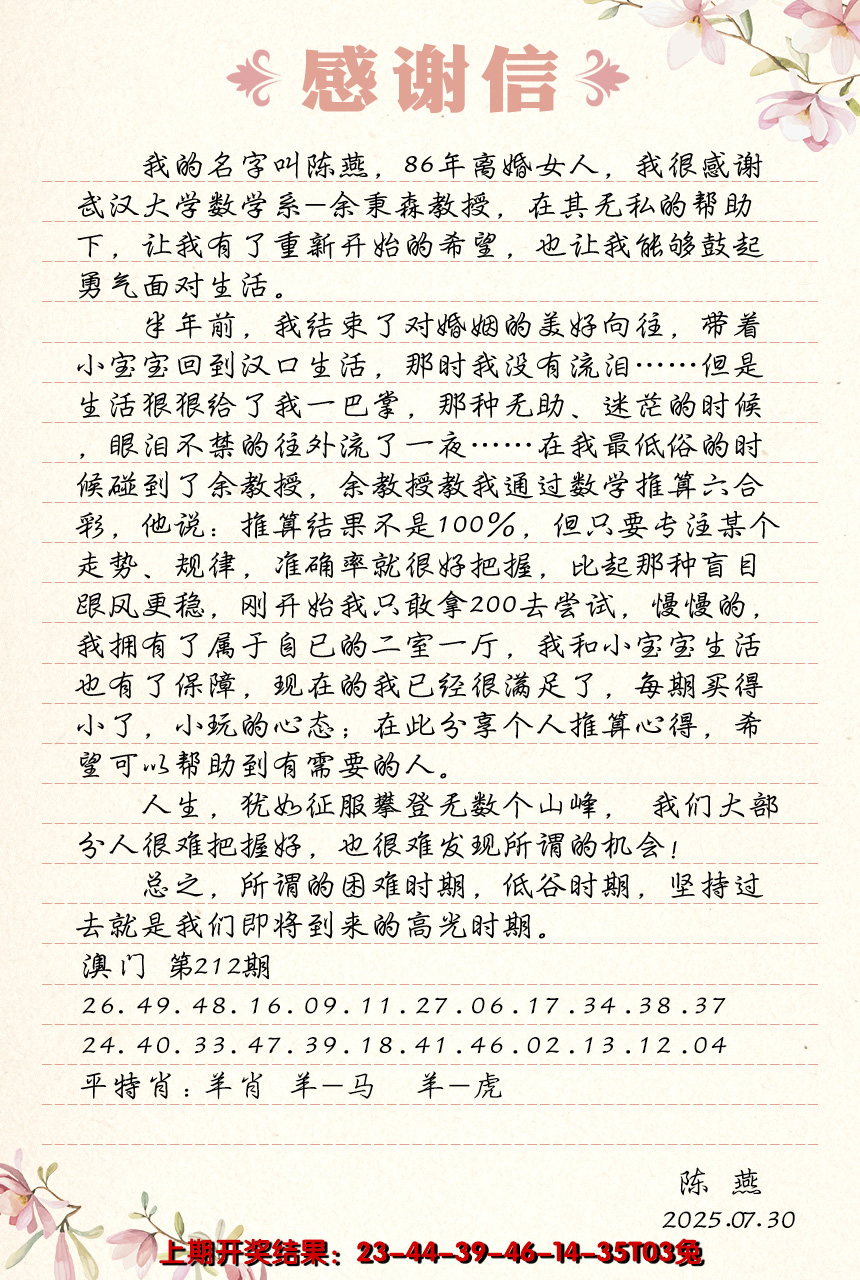 感谢信
我的名字叫陈燕，86年离婚女人，我很感谢
武汉大学数学系—余秉森教授，在其无私的帮助
下，让我有了重新开始的希望，也让我能够鼓起
勇气面对生活。
半年前，我结束了对婚姻的美好向往，带着
小宝宝回到汉口生活，那时我没有流泪……但是
生活狠狠给了我一巴掌，那种无助、迷茫的时候
，眼泪不禁的往外流了一夜……在我最低俗的时
候碰到了余教授，余教授教我通过数学推算六合
彩，他说：推算结果不是100%，但只要专注某个
走势、规律，准确率就很好把握，比起那种盲目
跟风更稳，刚开始我只敢拿200去尝试，慢慢的，
我拥有了属于自已的二室一厅，我和小宝宝生活
也有了保障，现在的我已经很满足了，每期买得
小了，小玩的心态；在此分享个人推算心得，希
望可以帮助到有需要的人。
人生，犹如征服攀登无数个山峰， 我们大部
分人很难把握好，也很难发现所谓的机会！
总之，所谓的困难时期，低谷时期，坚持过
去就是我们即将到来的高光时期。
澳门 第212期
26.49.48.16.09.11.27.06.17.34.38.37
24.40.33.47.39.18.41.46.02.13.12.04
平特肖：羊肖 羊—马 羊—虎
陈 燕
2025.07.30
上期开奖结果：23-44-39-46-14-35T03兔